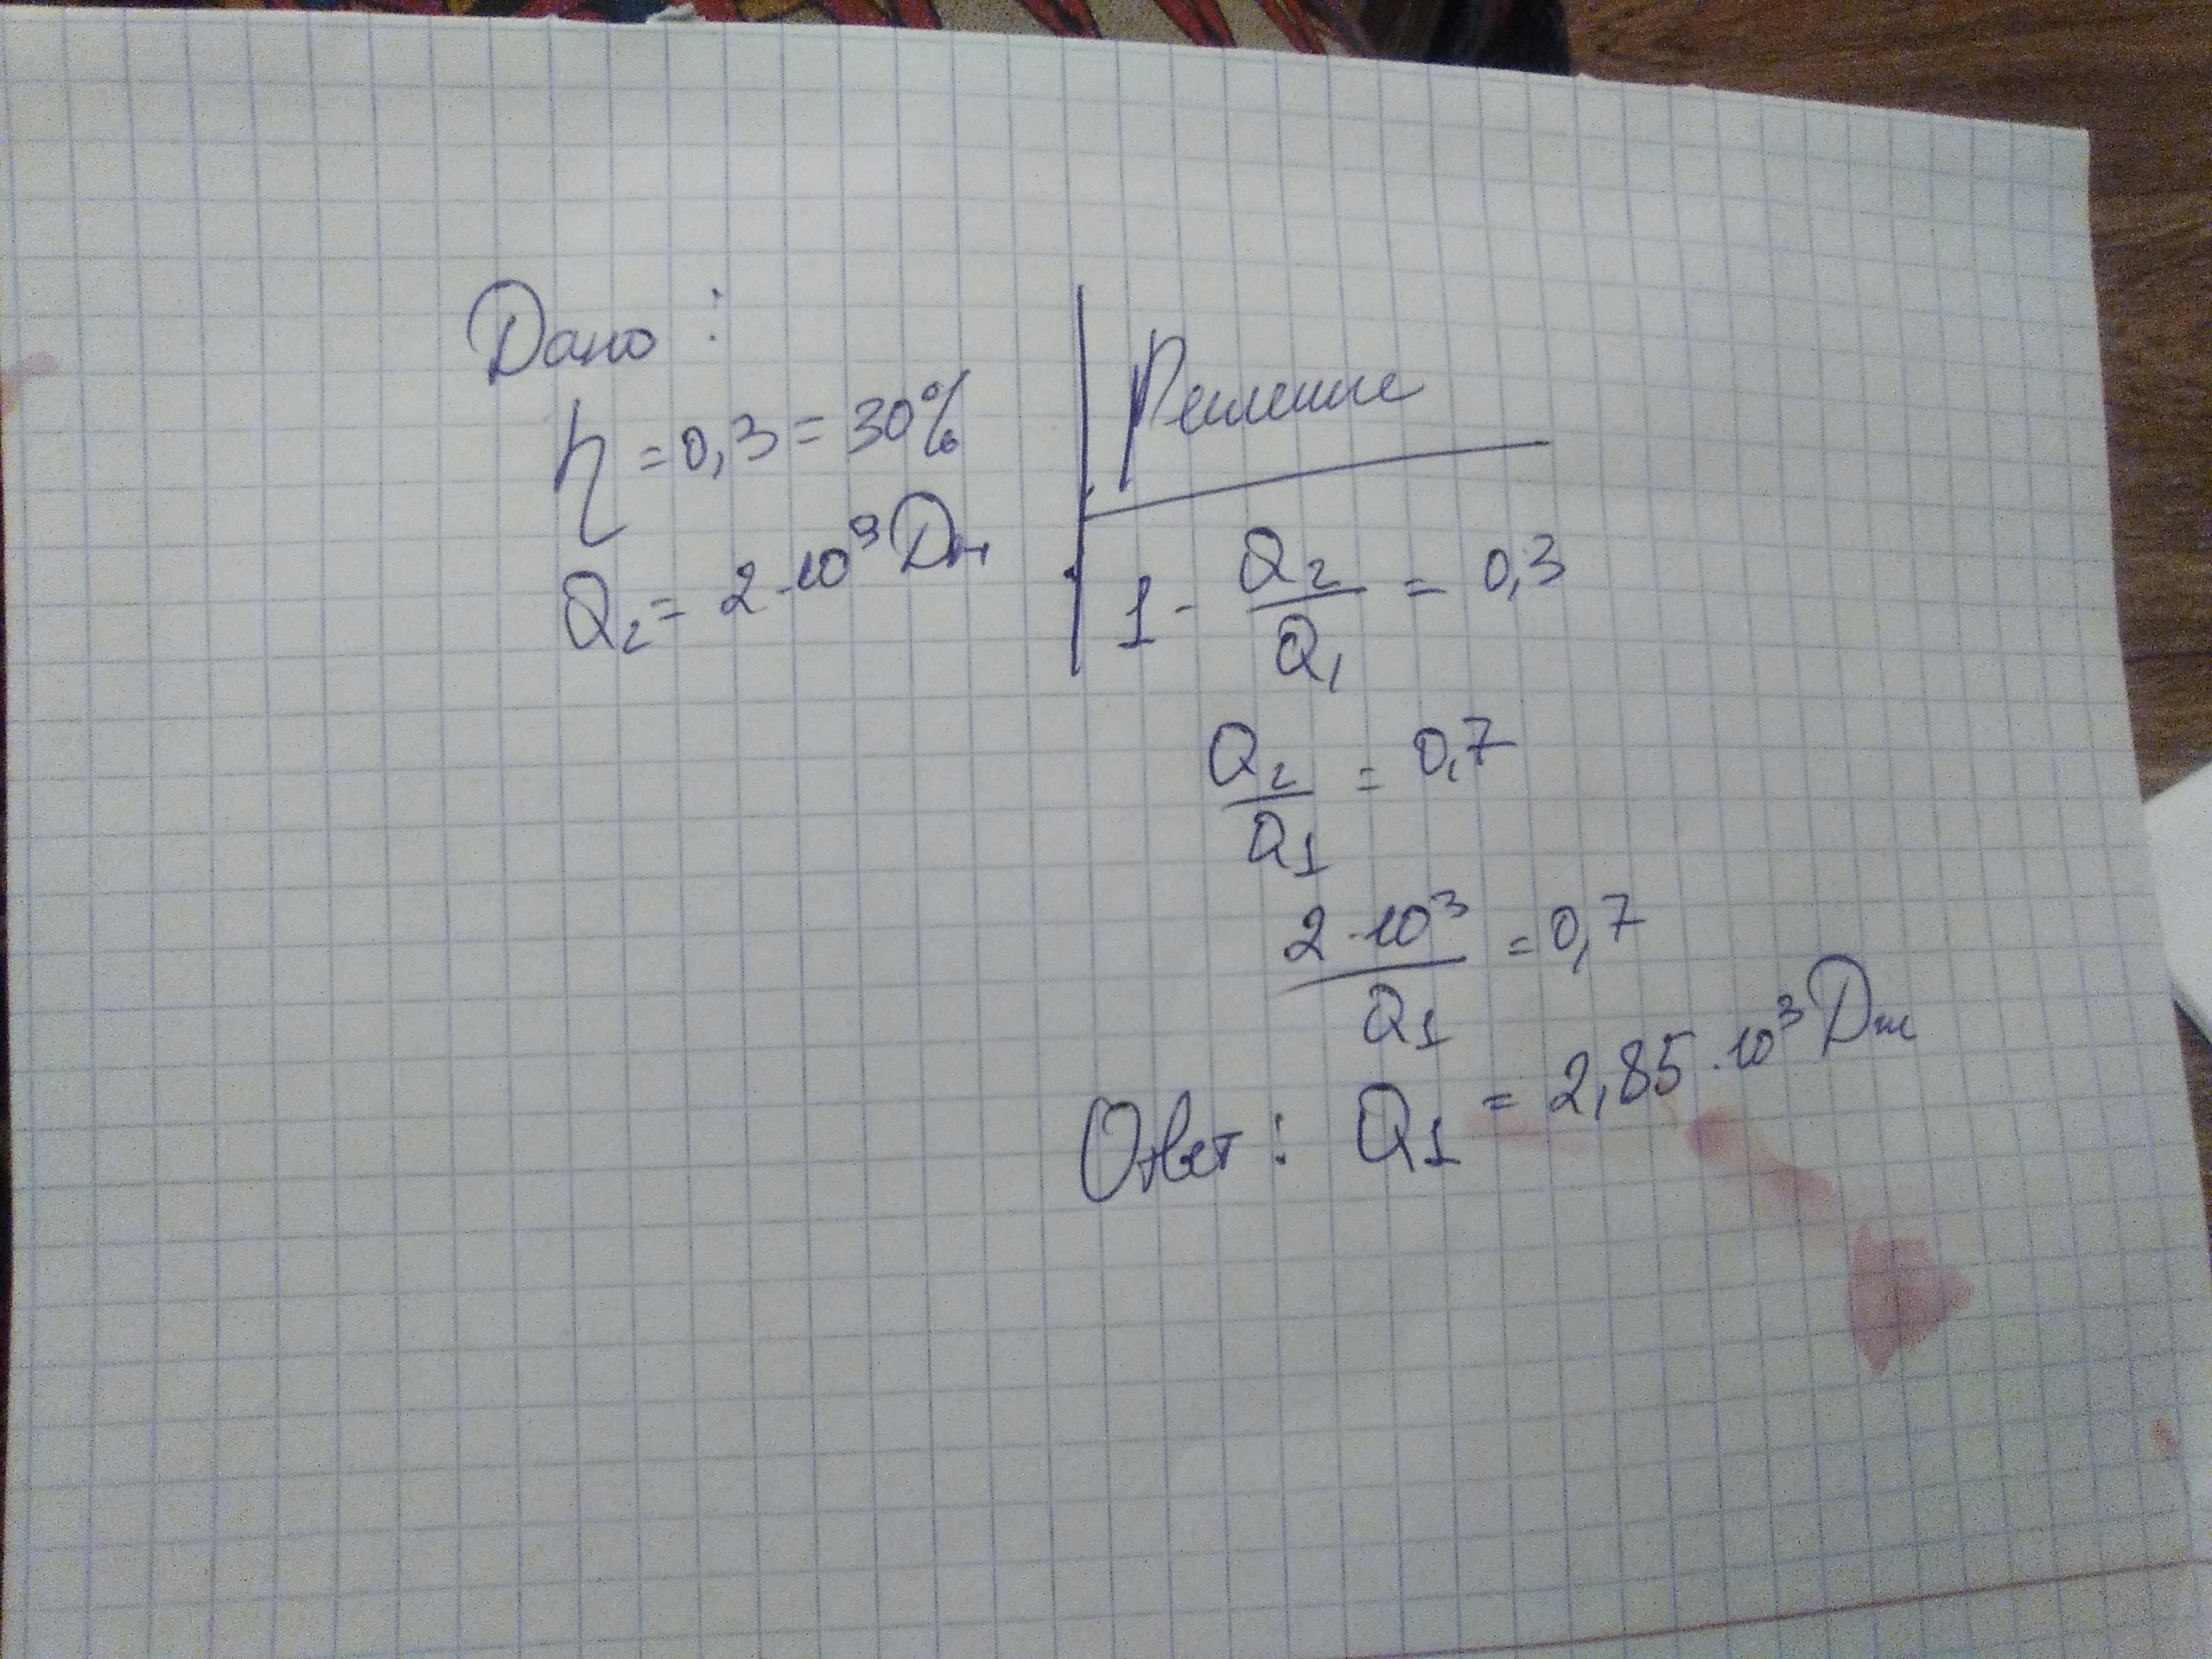 Дано:
η = 0,3 = 30%
Q₂ = 2·10³ Дж
Решение
1 - Q₂/Q₁ = 0,3
Q₂/Q₁ = 0,7
2·10³/Q₁ = 0,7
Ответ: Q₁ = 2,85·10³ Дж